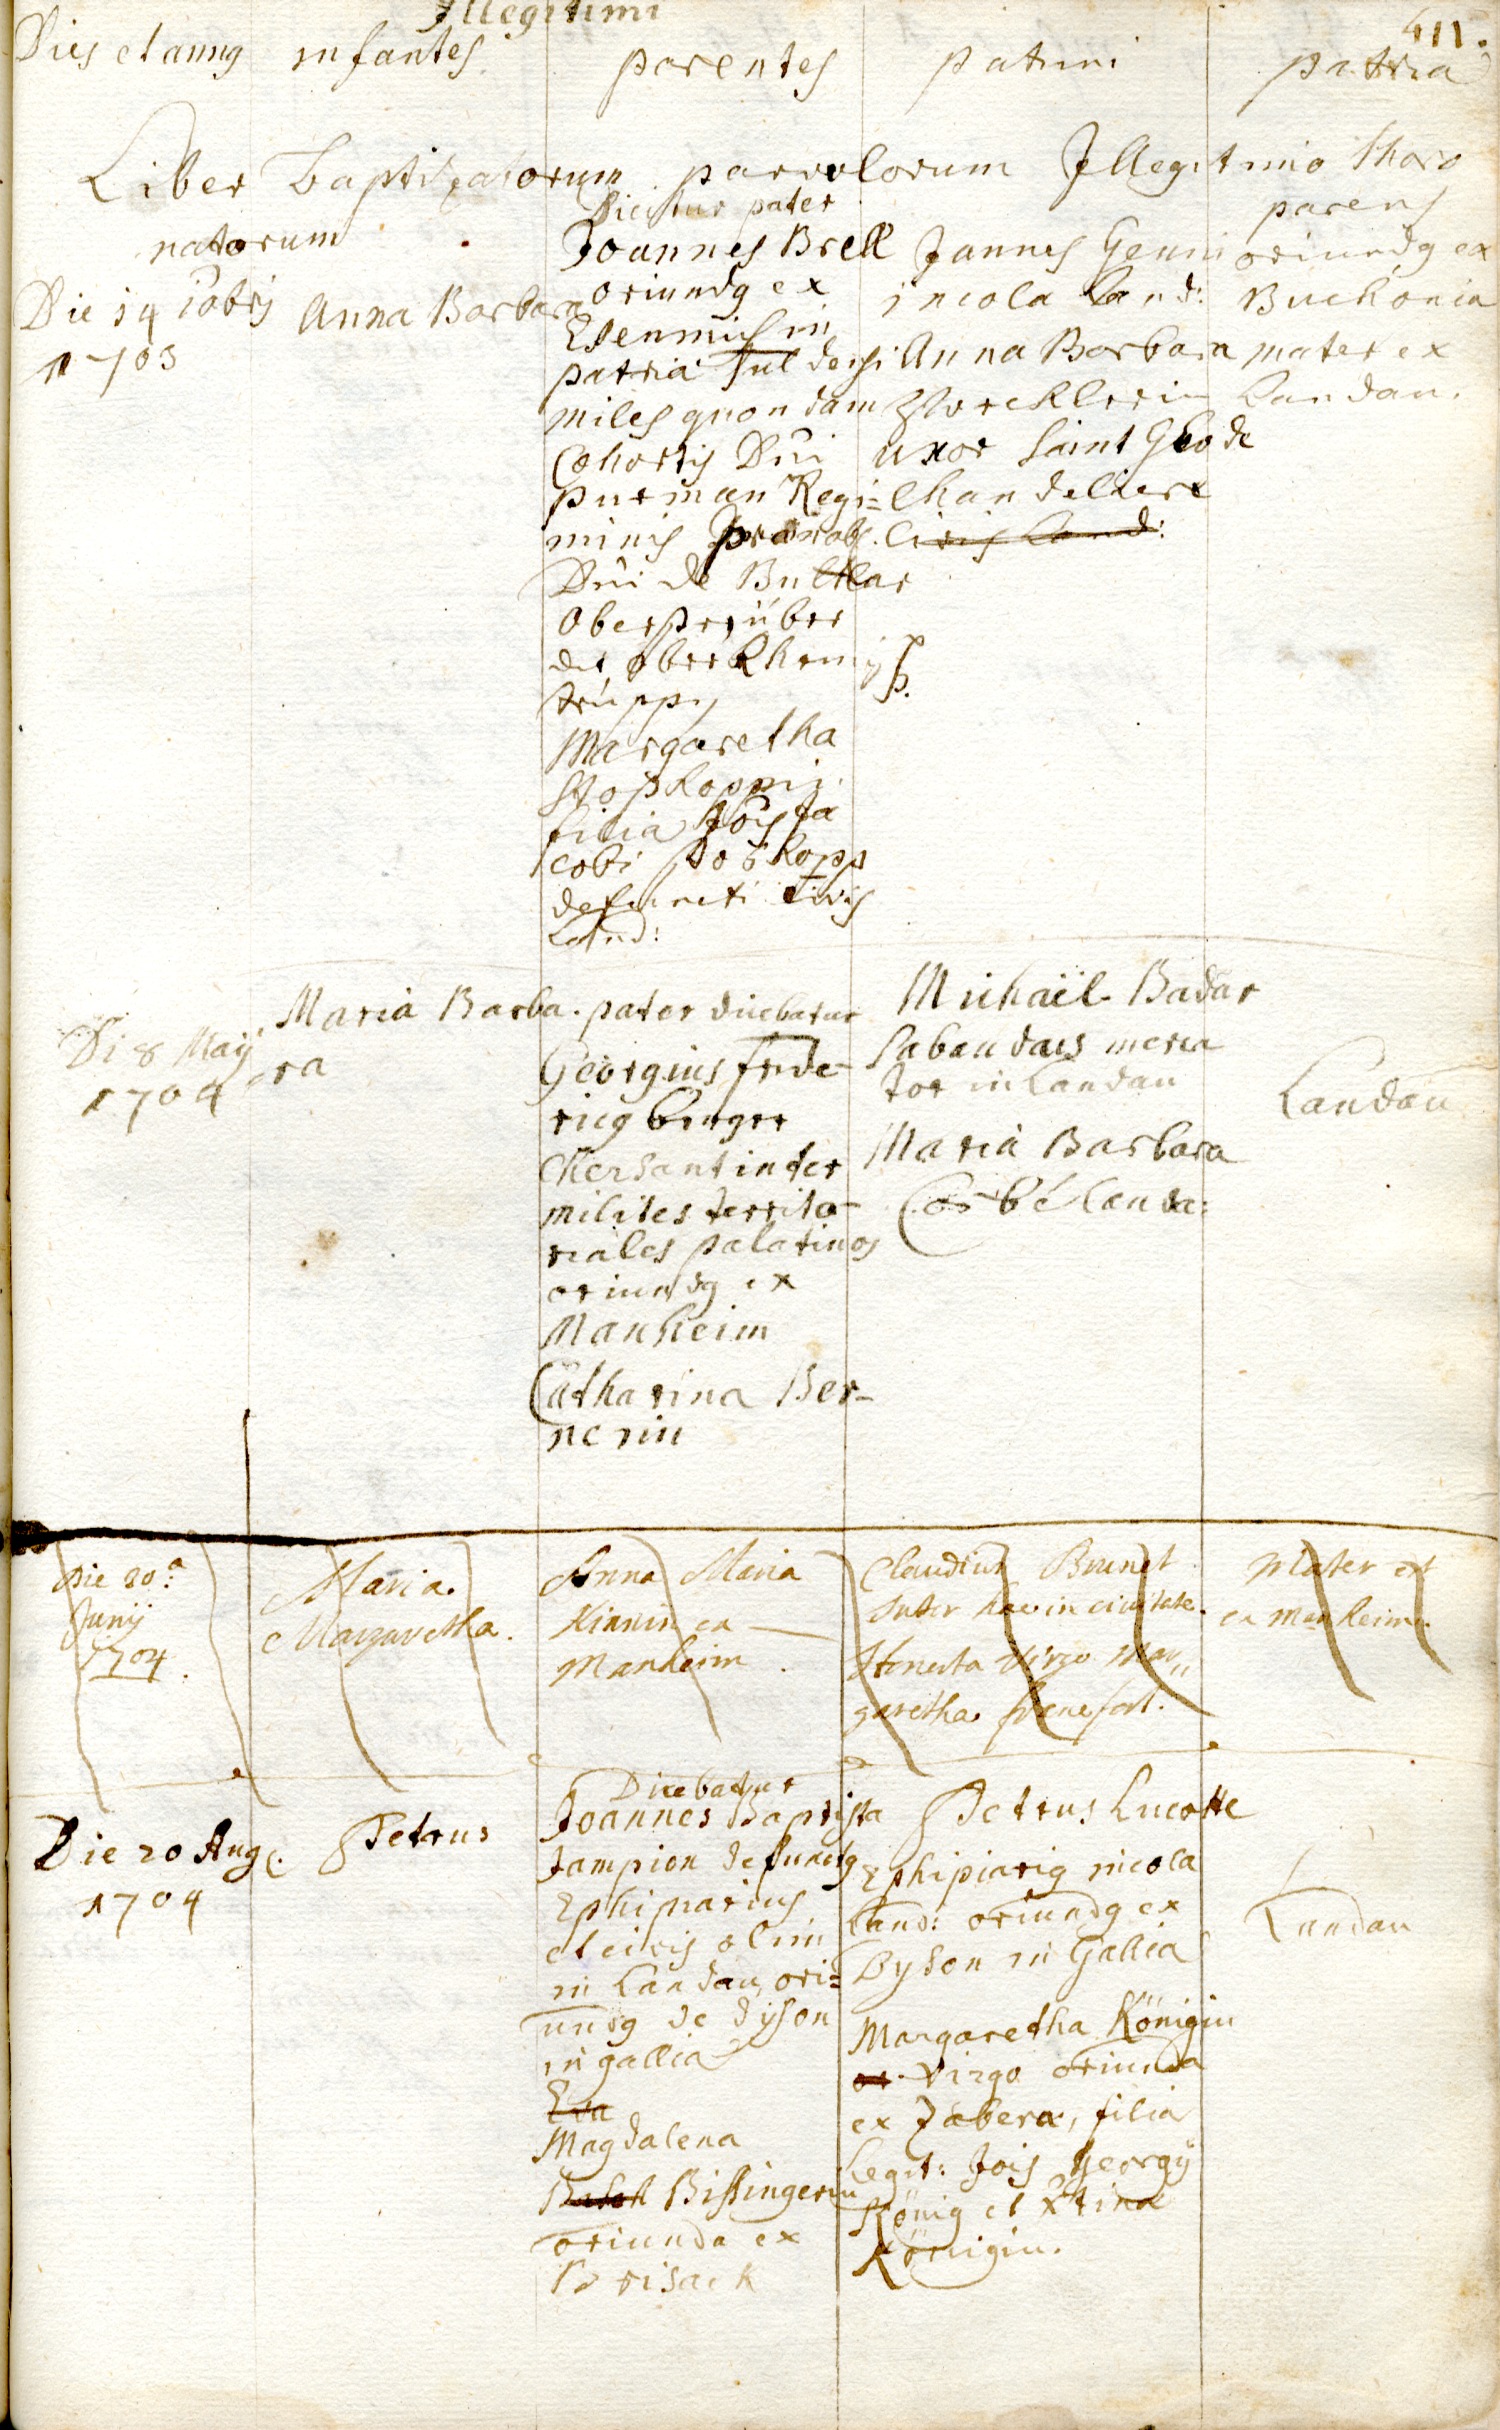 Illegitimi
611.
Dies et annus infantes parentes patrini patria
Liber baptizatorum parvulorum Illegitimo thoro
natorum
Die 14 10bris
1703
Anna Barbara
Dicitur pater
Joannes Brell
oriundus ex
in
patria
miles quondam
Cohortis Dni
purman Regi=
minis
Dni de Buttlar
Ober
der
trupp
Margaretha
Stoßkoppin
filia Jois Ja
cobi Stoßkopp
defuncti civis
Land:
Jannes Genni
incola Land:
Anna Barbara
uxor Saint
Chandeliere
civis Land:
parens
oriundus ex
Buchonia
mater ex
Landau.
Di 8 Maij
1704
Maria Barba.
ra
pater dicebatur
Georgius fride-
ricus
inter
milites territo-
riales palatinos
oriundus ex
Manheim
Catharina Ber-
nerin
Michaël Badar
Sabaudus merca
tor in Landau
Maria Barbara
Corbé Landa:
Landau
Die 20.a
Junij
1704.
Maria
Margaretha.
Anna Maria
ex
Manheim.
Claudius Brunet
Sutor hac in civitate.
Honesta Virgo Mar
garetha
Mater est
ex Manheim.
Die 20 Aug.
1704
Petrus
Dicebatur
Joannes Baptista
Jampion defunctus
Ephipiarius
et civis olim
in Landau, ori=
undus de dyson
in gallia
Eva
Magdalena
Bissingerin
oriunda ex
Brisack
Petrus Lucotte
Ephipiarius incola
Land: oriundus ex
Dyson in Gallia
Margaretha Königin
or Virgo oriunda
ex Zabera, filia
Legit: Jois Georgij
König et Xtina
Königin.
Landau